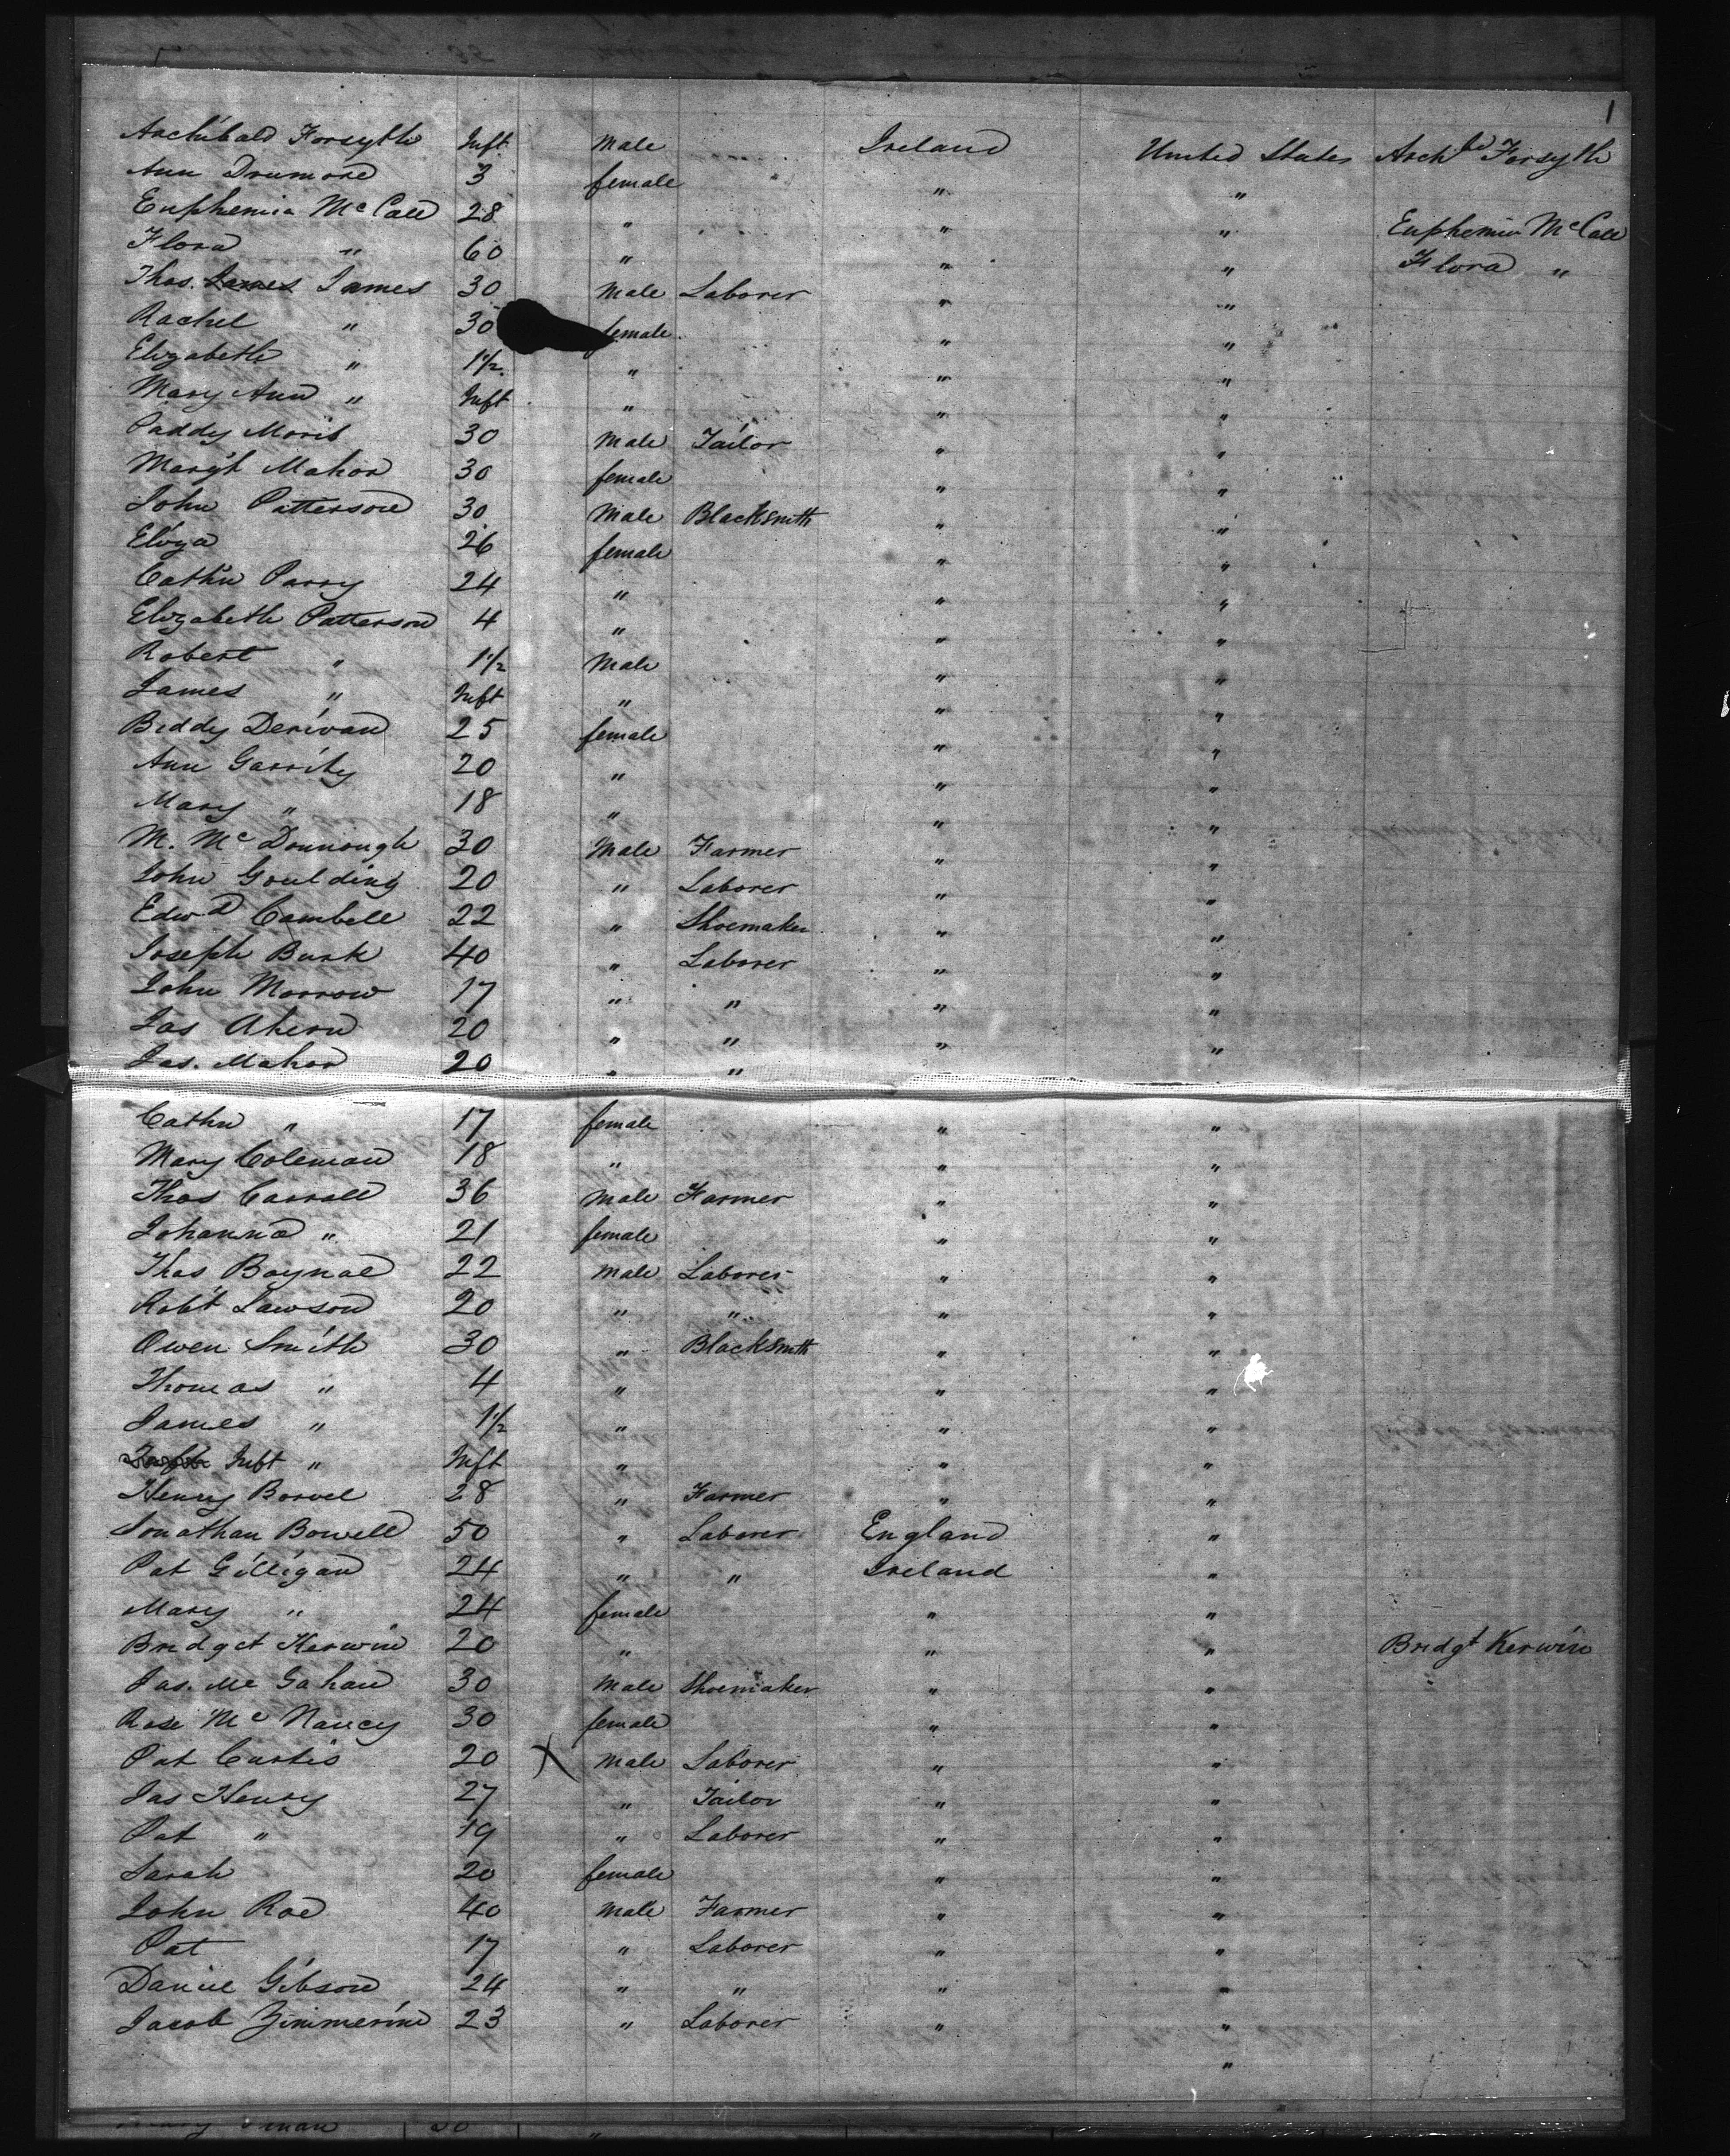 1
Archibald Forsyth Inft Male Ireland United States Archd Forsyth
Ann Drumore 3 female " "
Euphemia McCall 28 " " " Euphemia McCall
Flora " 60 " " " Flora "
Thos. James James 30 Male Laborer " "
Rachel " 30 female " "
Elizabeth " 1 1/2 " " "
Mary Ann " Inft " " "
Paddy Moris 30 Male Tailor " "
Marg't Mahor 30 female " "
John Patterson 30 Male Blacksmith " "
Eliza 26 female " "
Cath'n Parry 24 " " "
Elizabeth Patterson 4 " " "
Robert " 1 1/2 Male " "
James " Inft " " "
Biddy Derivan 25 female " "
Ann Garrity 20 " " "
Mary " 18 " " "
M. McDonnough 30 Male Farmer " "
John Goulding 20 " Laborer " "
Edwd Cambell 22 " Shoemaker " "
Joseph Burk 40 " Laborer " "
John Morrow 17 " " " "
Jas Ahern 20 " " " "
Jas. Mahor 20 " "
Cathn " 17 female " "
Mary Coleman 18 " " "
Thos Carroll 36 Male Farmer " "
Johanna " 21 female " "
Thos Boynal 22 Male Laborer " "
Rob't Lawson 20 " " " "
Owen Smith 30 " Blacksmith " "
Thomas " 4 " " "
James " 1 1/2 " " "
Inft " Inft " " "
Henry Borvel 28 " Farmer " "
Jonathan Bowell 50 " Laborer England "
Pat Gilligan 24 " " Ireland "
Mary " 24 female " "
Bridget Kerwin 20 " " " Bridgt Kerwin
Jas. McGahan 30 Male Shoemaker " "
Rose McNancy 30 female " "
Pat Curtis 20 X Male Laborer " "
Jas Henry 27 " Tailor " "
Pat " 19 " Laborer " "
Sarah 20 female " "
John Roe 40 Male Farmer " "
Pat 17 " Laborer " "
Daniel Gibson 24 " " " "
Jacob Zimmerine 23 " Laborer " "
"